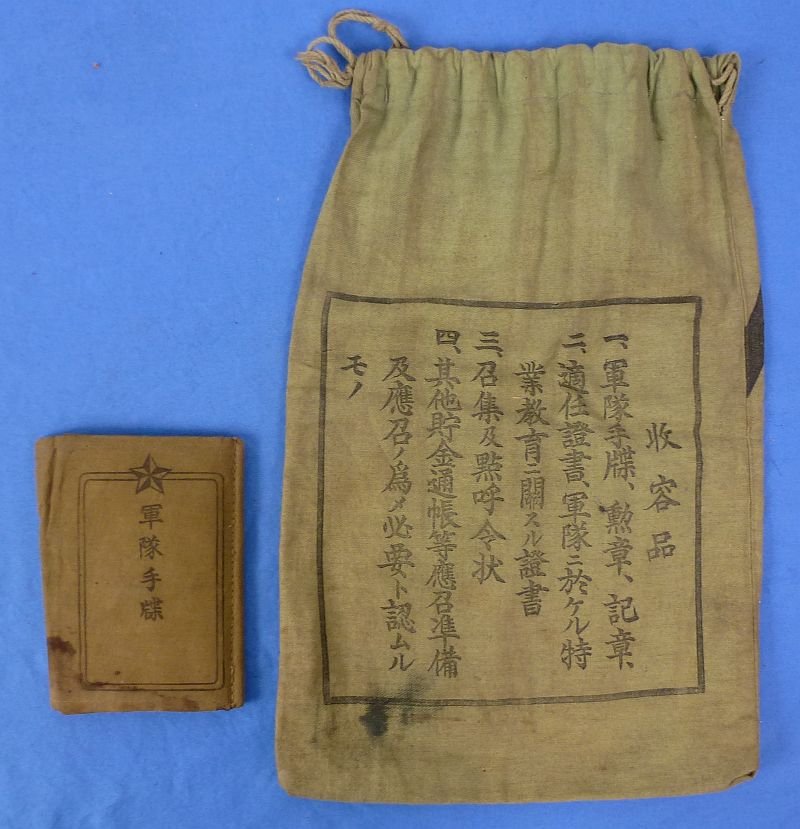 軍隊手牒
收容品
一、軍隊手牒、勲章、記章、
二、適任證書、軍隊ニ於ケル特
業教育ニ關スル證書
三、召集及點呼令状
四、其他貯金通帳等應召準備
及應召ノ爲メ必要ト認ムル
モノ